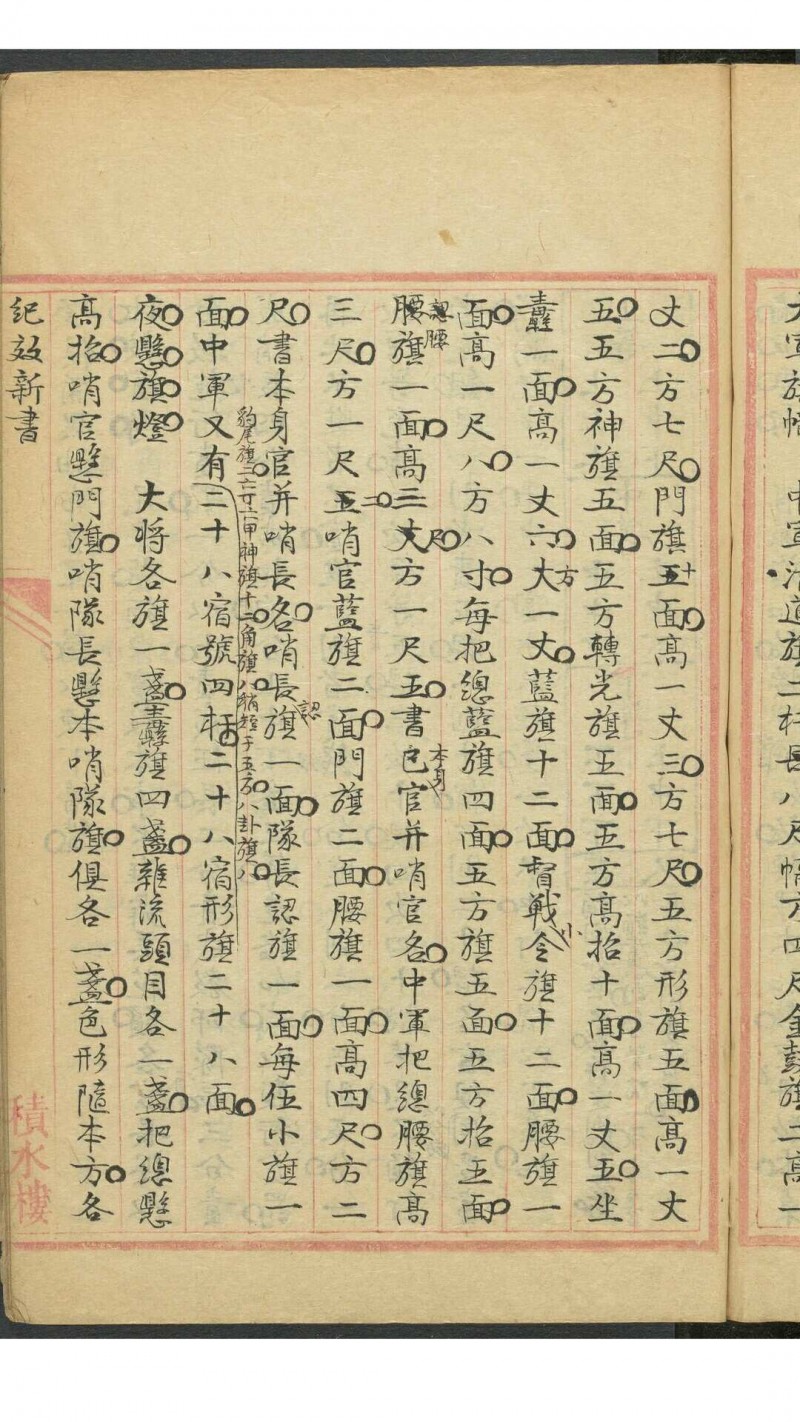 丈二方七尺門旗五十面高一丈三方七尺五方形旗五面高一丈
五五方神旗五面五方轉光旗五面五方高招十面高一丈五坐
纛一面高一丈六方大一丈藍旗十二面督戰小令旗十二面腰旗一
面高一尺八方八寸每把總藍旗四面五方旗五面五方招五面
認腰
腰旗一面高三丈尺方一尺五書巳本身官并哨官名中軍把總腰旗高
三尺方一尺五二哨官藍旗二面門旗二面腰旗一面高四尺方二
尺書本身官并哨長名哨長認旗一面隊長認旗一面每伍小旗一
豹尾旗二六丁六甲神旗十二角旗八
五方八卦旗八
面中軍又有二十八宿號四桿二十八宿形旗二十八面
夜懸旗燈 大将各旗一盞坐纛旗四盞雜流頭目各一盞把總懸
高招哨官懸門旗哨隊長懸本哨隊旗俱各一盞色形隨本方各
紀效新書
積水樓